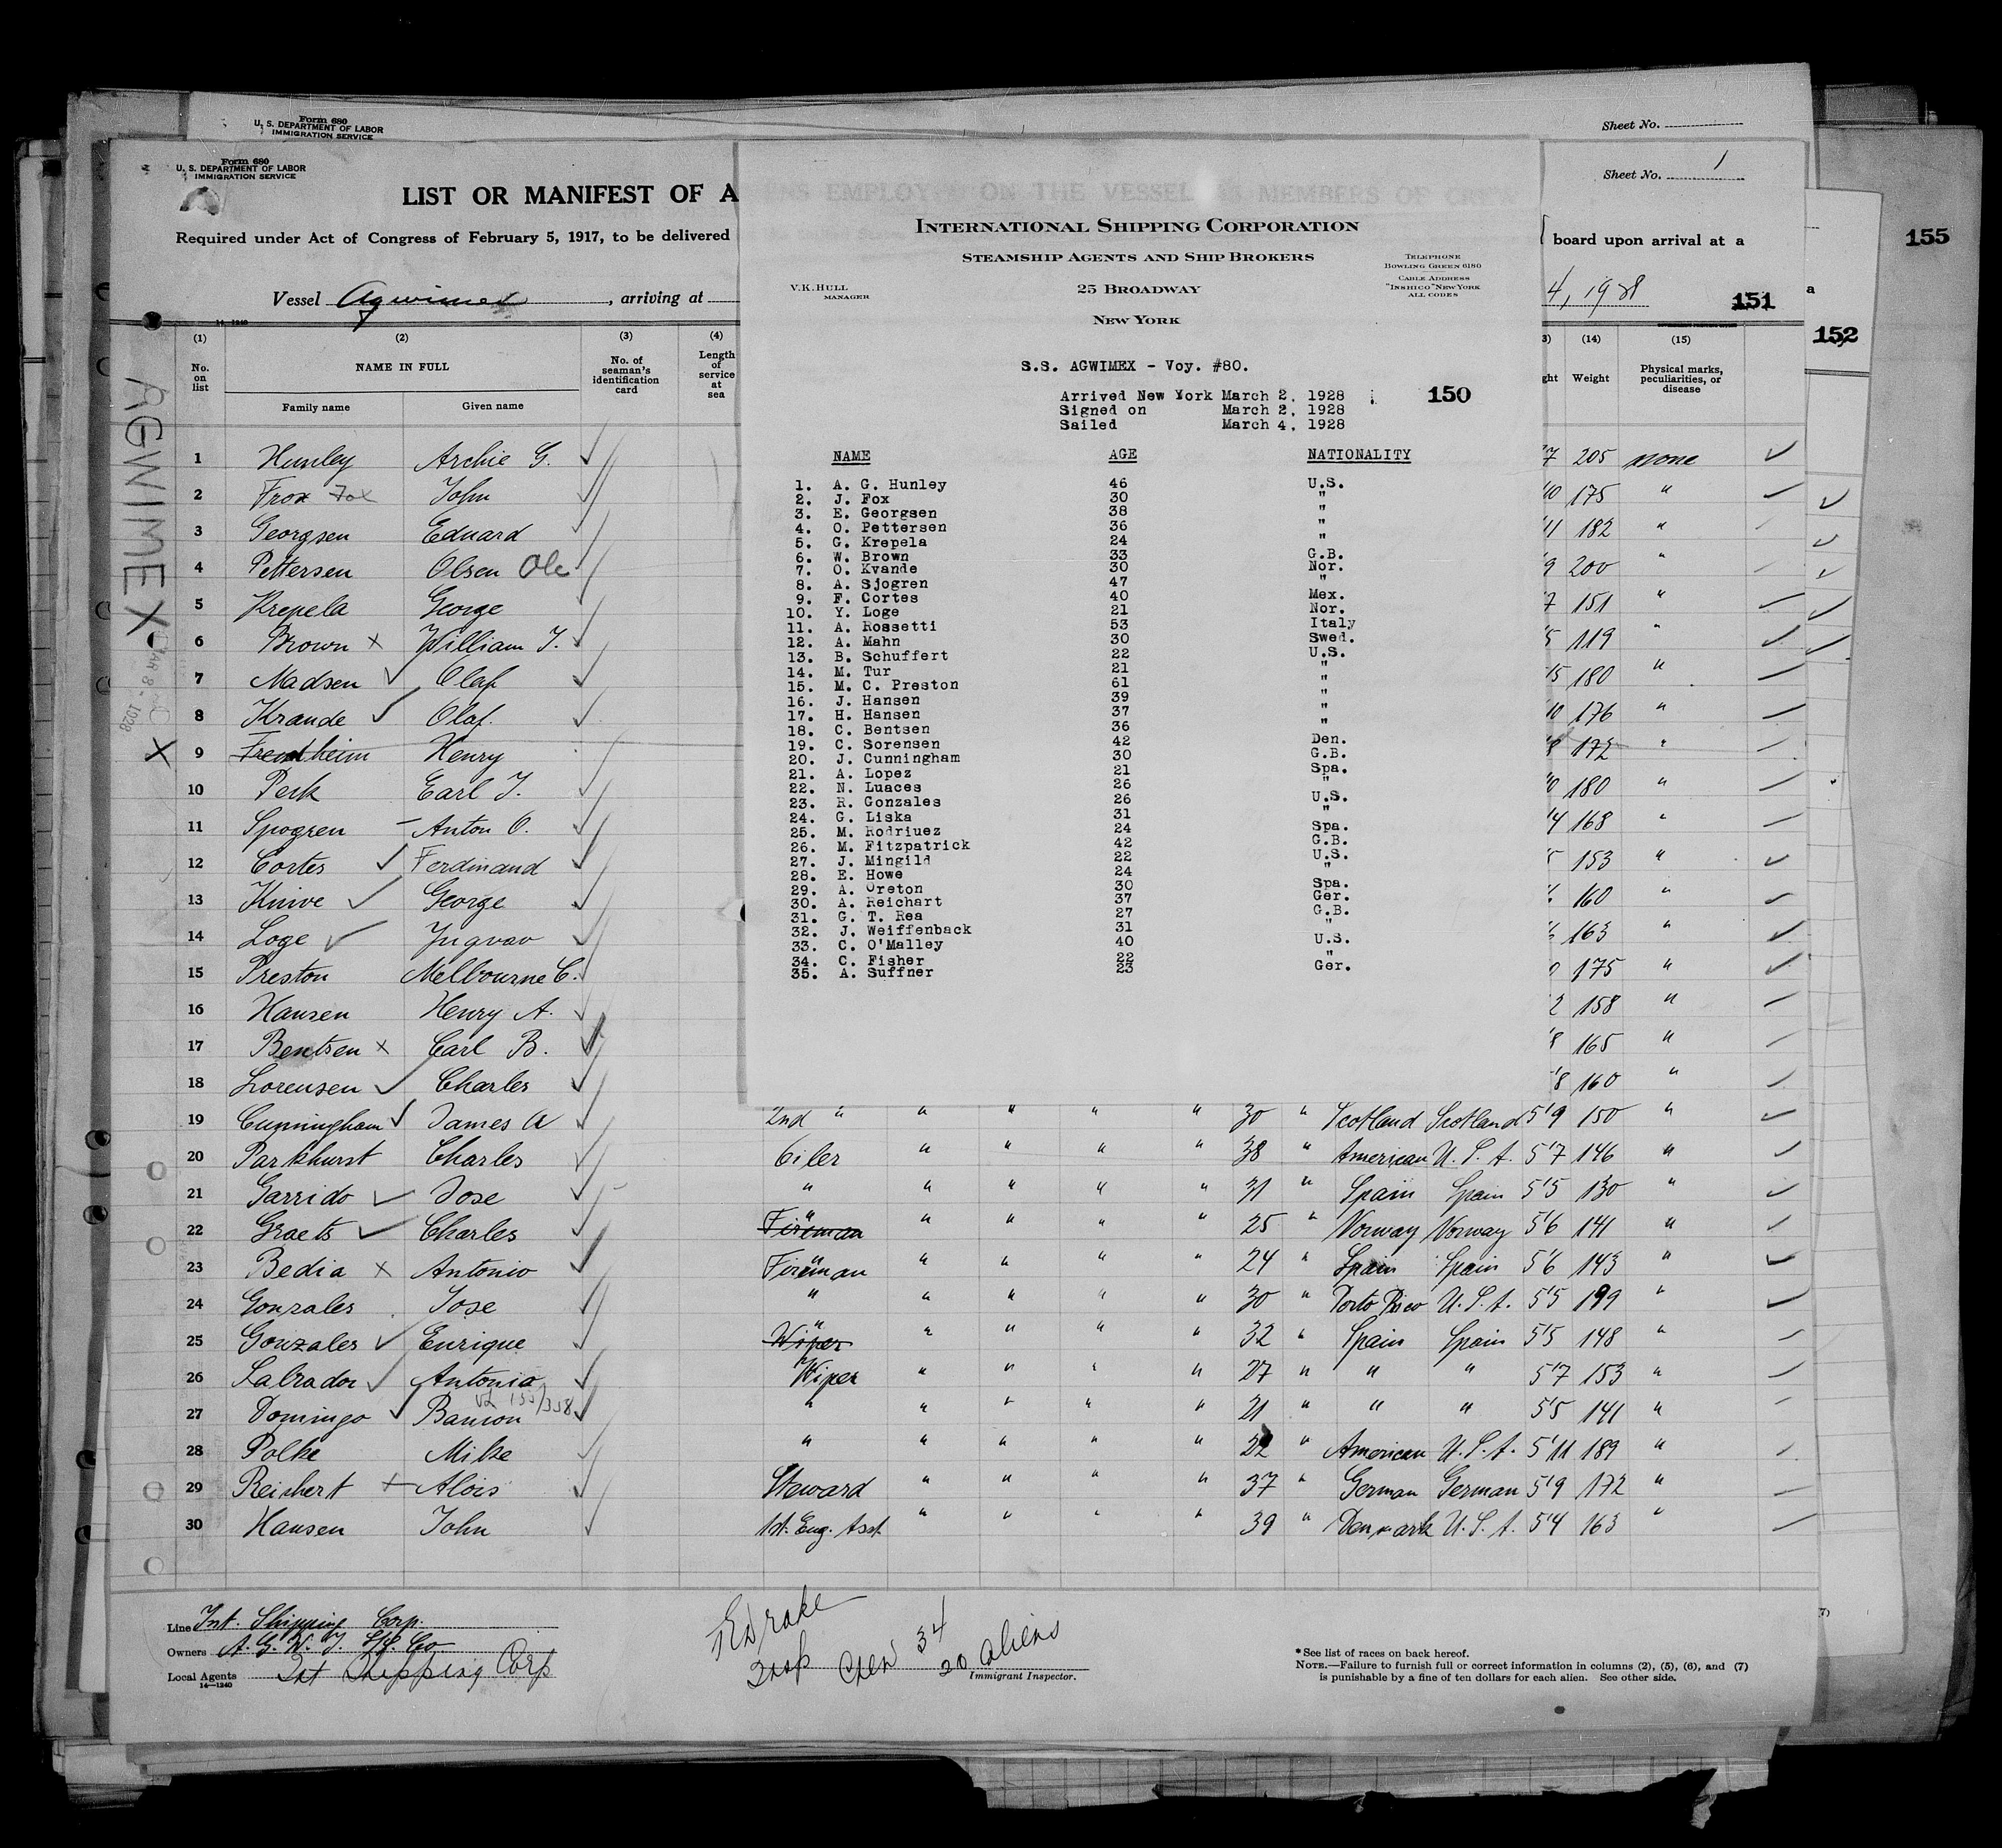 Form 680
U. S. DEPARTMENT OF LABOR
IMMIGRATION SERVICE
Sheet No.
Form 680
U. S. DEPARTMENT OF LABOR
IMMIGRATION SERVICE
Sheet No. 1
LIST OR MANIFEST OF A
Required under Act of Congress of February 5, 1917, to be delivered
board upon arrival at a
Vessel Agwimex, arriving at
4, 1928
151
a
152
155
INTERNATIONAL SHIPPING CORPORATION
STEAMSHIP AGENTS AND SHIP BROKERS
V.K. HULL
MANAGER
25 BROADWAY
NEW YORK
TELEPHONE
BOWLING GREEN 6180
CABLE ADDRESS
"INSHICO" NEW YORK
ALL CODES
S.S. AGWIMEX - Voy. #80.
Arrived New York March 2, 1928
Signed on March 2, 1928
Sailed March 4, 1928
150
NAME AGE NATIONALITY
1. A. G. Hunley 46 U.S.
2. J. Fox 30 "
3. E. Georgsen 38 "
4. O. Pettersen 36 "
5. G. Krepela 24 "
6. W. Brown 33 G.B.
7. O. Kvande 30 Nor.
8. A. Sjogren 47 "
9. F. Cortes 40 Mex.
10. Y. Loge 21 Nor.
11. A. Rossetti 53 Italy
12. A. Mahn 30 Swed.
13. B. Schuffert 22 U.S.
14. M. Tur 21 "
15. M. C. Preston 61 "
16. J. Hansen 39 "
17. H. Hansen 37 "
18. C. Bentsen 36 "
19. C. Sorensen 42 Den.
20. J. Cunningham 30 G.B.
21. A. Lopez 21 Spa.
22. N. Luaces 26 "
23. R. Gonzales 26 U.S.
24. G. Liska 31 "
25. M. Rodriuez 24 Spa.
26. M. Fitzpatrick 42 G.B.
27. J. Mingild 22 U.S.
28. E. Howe 24 "
29. A. Oreton 30 Spa.
30. A. Reichart 37 Ger.
31. G. T. Rea 27 G.B.
32. J. Weiffenback 31 "
33. C. O'Malley 40 U.S.
34. C. Fisher 22 "
35. A. Suffner 23 Ger.
(1) (2) (3) (4) (14) (15)
No. on list
NAME IN FULL
Family name Given name
No. of seaman's identification card
Length of service at sea
ght Weight
Physical marks, peculiarities, or disease
AGWIMEX
MAR 8 - 1928
1 Hunley Archie G. 205 none
2 Frox Fox John 175 "
3 Georgsen Eduard 182 "
4 Pettersen Olsen Ole 200 "
5 Krepela George 151 "
6 Brown X William J. 119 "
7 Madsen Olaf 180 "
8 Krande Olaf. 176 "
X 9 Henry 172 "
10 Perk Earl J. 180 "
11 Spogren Anton O. 168 "
12 Cortes Ferdinand 153 "
13 Knive George 160 "
14 Loge Yngvav 163 "
15 Preston Melbourne C. 175 "
16 Hansen Henry A. 158 "
17 Bentsen X Carl B. 165 "
18 Lorensen Charles 160 "
19 Cunningham James A 2nd " " " " " 30 " Scotland Scotland 5'9 150 "
20 Parkhurst Charles Oiler " " " " 38 " American U. S. A. 5'7 146 "
21 Garrido Jose " " " " " 31 " Spain Spain 5'5 130 "
22 Graets Charles Fireman " " " " " 25 " Norway Norway 5'6 141 "
23 Bedia X Antonio Fireman " " " " 24 " Spain Spain 5'6 143 "
24 Gonzales Jose " " " " " 30 " Porto Rico U. S. A. 5'5 199 "
25 Gonzales Enrique Wiper " " " " " 32 " Spain Spain 5'5 148 "
26 Labrador Antonio Wiper " " " " 27 " " " 5'7 153 "
27 Domingo Bamon " " " " " 21 " " " 5'5 141 "
28 Polke Mike " " " " " 22 " American U. S. A. 5'11 189 "
29 Reichert X Alois Steward " " " " 37 " German German 5'9 172 "
30 Hansen John 1st. Eng. Asst. " " " " 39 " Denmark U. S. A. 5'4 163 "
Line Int. Shipping Corp.
Owners A. G. W. I. S/S. Co
Local Agents Int Shipping Corp
14—1240
Crew 34
20 aliens
Immigrant Inspector.
* See list of races on back hereof.
NOTE.—Failure to furnish full or correct information in columns (2), (5), (6), and (7)
is punishable by a fine of ten dollars for each alien. See other side.